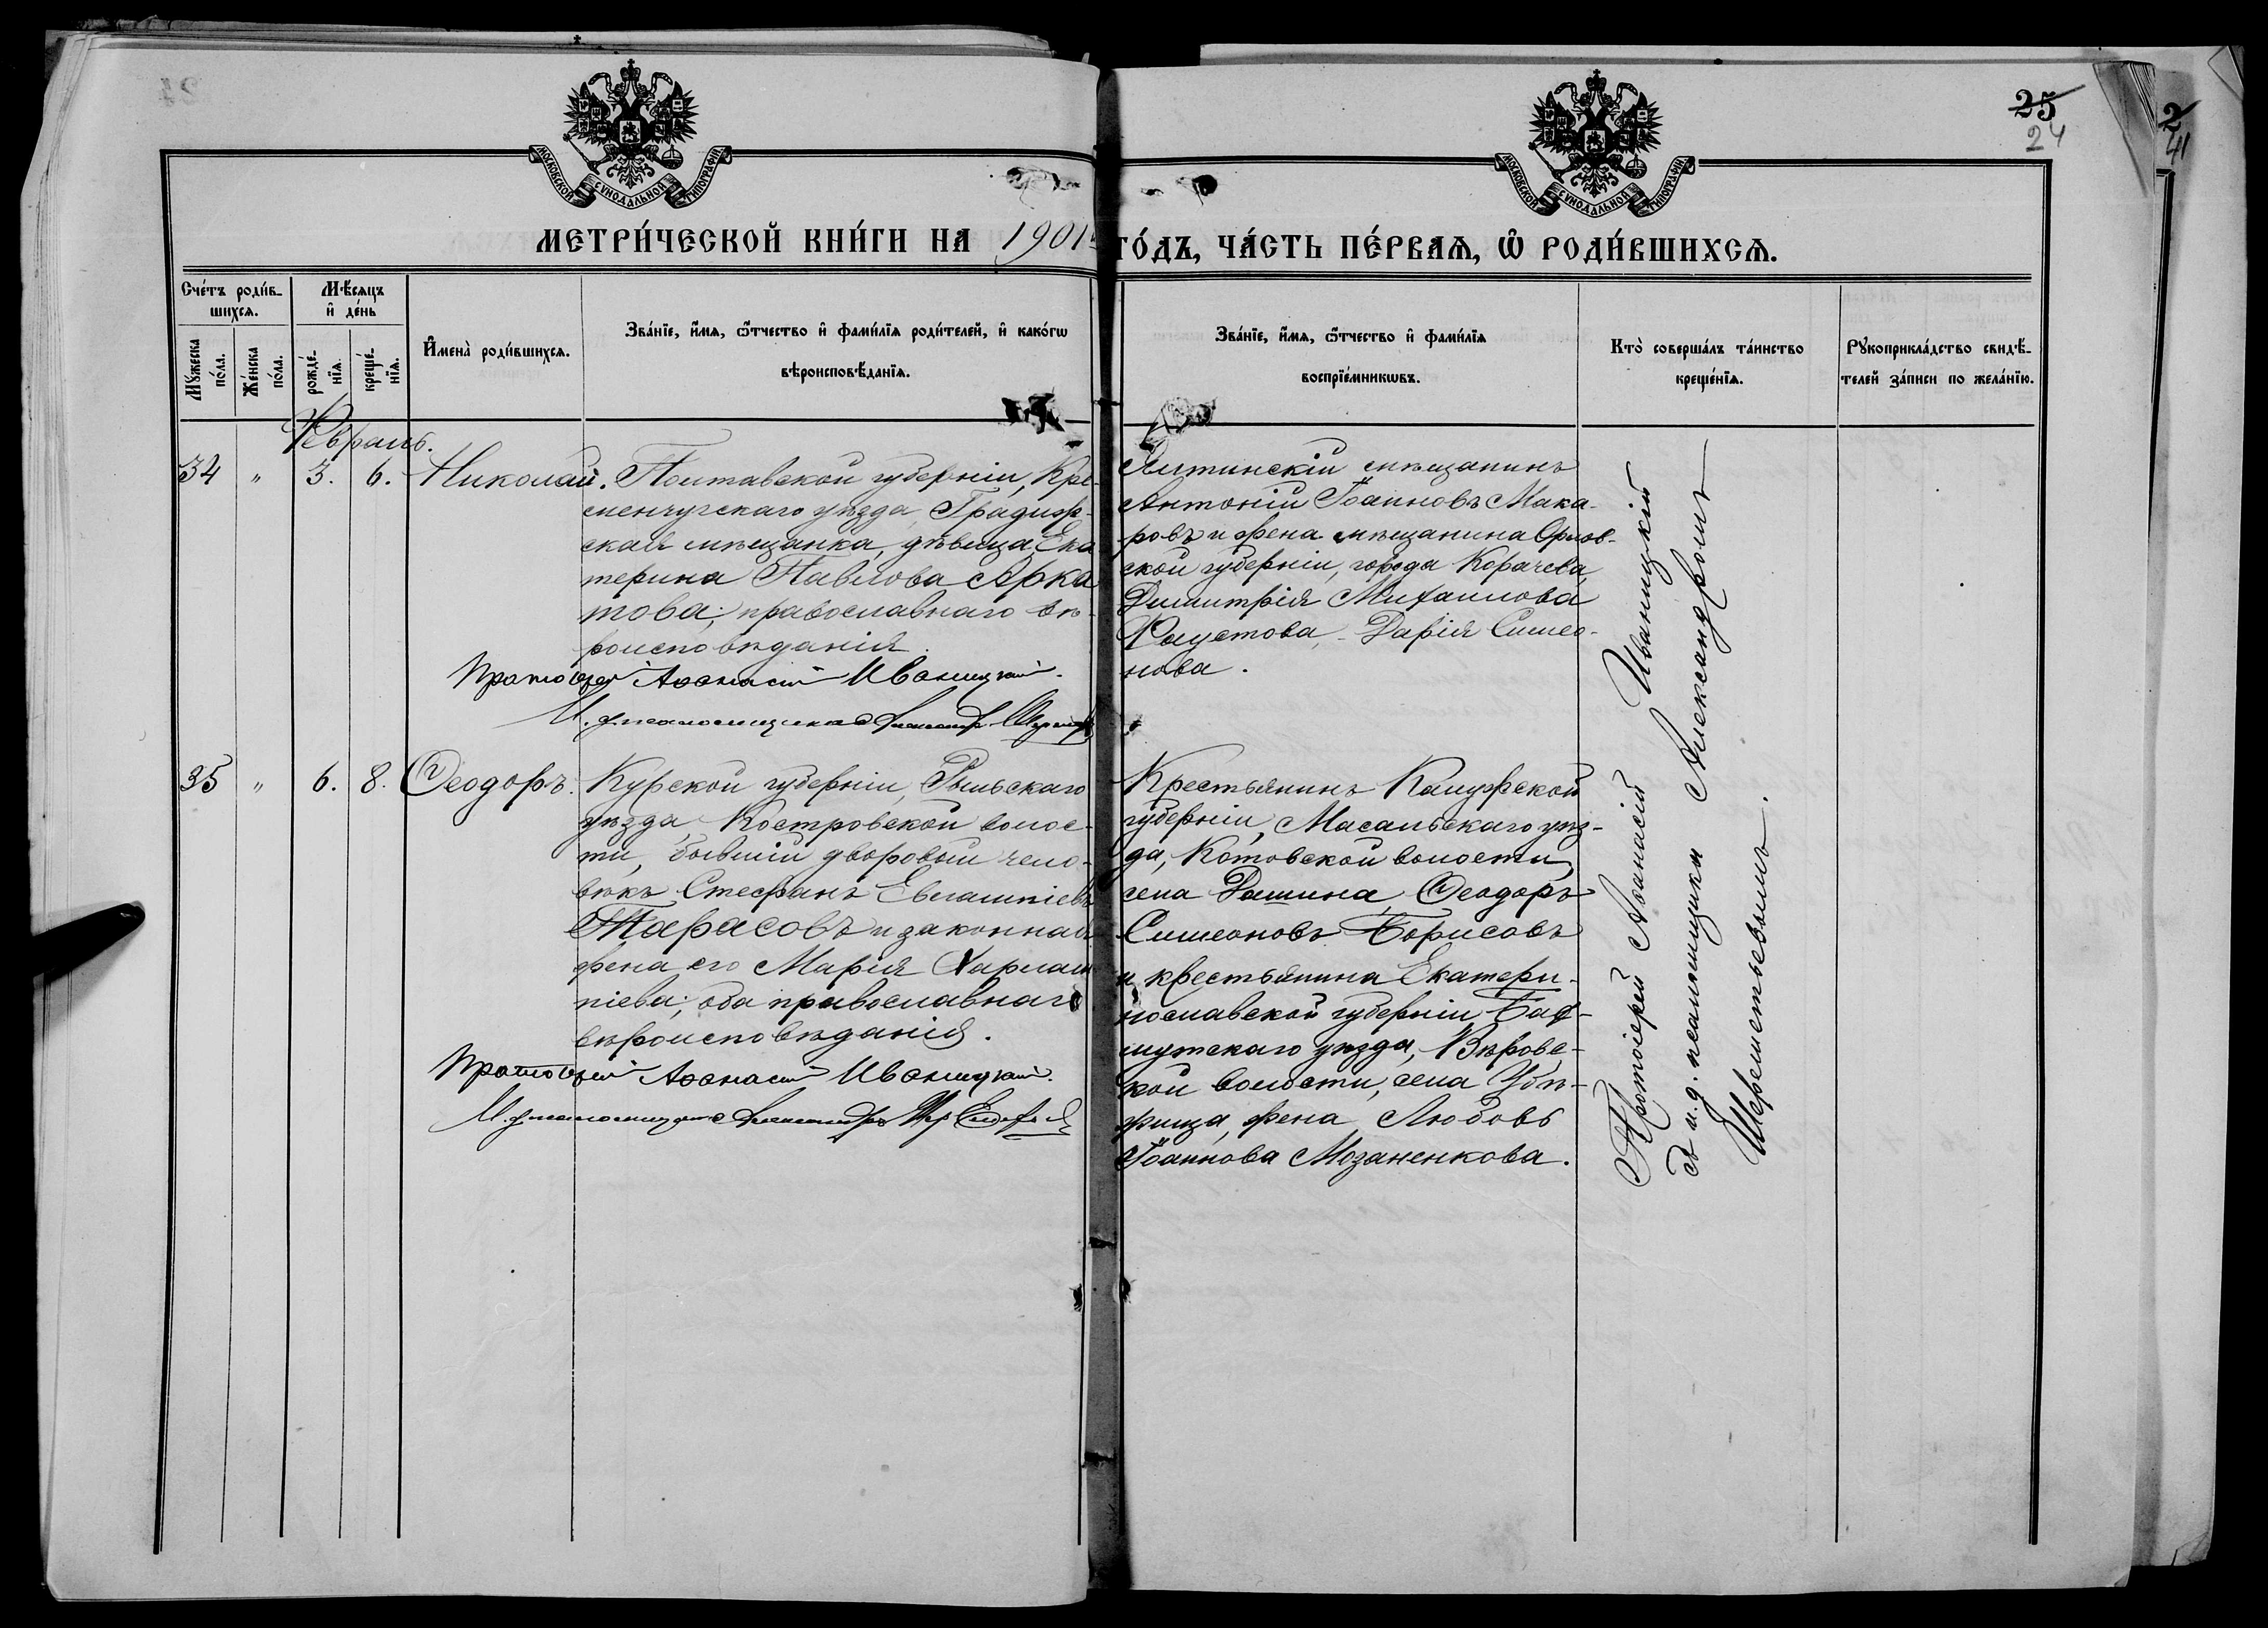 25
24
МОСКОВСКОЙ СѴНОДАЛЬНОЙ ТИПОГРАФІИ
МОСКОВСКОЙ СѴНОДАЛЬНОЙ ТИПОГРАФІИ
МЕТРИ́ЧЕСКОЙ КНИ́ГИ НА 1901
ГО́ДЪ, ЧА́СТЬ ПЕ́РВАѦ, Ѿ РОДИ́ВШИХСѦ.
Сче́тъ роди́в-
шихсѧ.
Мꙋ́жеска
по́ла.
Же́нска
по́ла.
Мѣ́сѧцъ
и҆ де́нь
рожде́-
нїѧ.
креще́-
нїѧ.
И҆мена̀ роди́вшихсѧ.
Зва́нїе, и҆́мѧ, ѻ҆́тчество и҆ фами́лїѧ роди́телей, и҆ како́гѡ
вѣроисповѣ́данїѧ.
Зва́нїе, и҆́мѧ, ѻ҆́тчество и҆ фами́лїѧ
воспрїе́мникѡвъ.
Кто̀ соверша́лъ та́инство
креще́нїѧ.
Рꙋкоприкла́дство свидѣ́-
телей за́писи по жела́нїю.
Февраль.
34 " 3. 6. Николай. Полтавской губерніи, Кре-
менчугскаго уѣзда, Градиж-
ская мѣщанка, дѣвица Ека
терина Павлова Арка
това; православнаго вѣ-
роисповѣданія.
Протоіерей Аѳанасій Иваницкій.
И. д. псаломщика Александръ
Ялтинскій мѣщанинъ
Антоній Іоанновъ Мака-
ровъ и жена мѣщанина Орлов-
ской губерніи, города Корачева,
Димитрія Михаилова
Фаустова, Дарія Симео-
нова.
35 " 6. 8. Ѳеодоръ. Курской губерніи, Рыльскаго
уѣзда, Костровской волос-
ти, бывшій дворовый чело-
вѣкъ Стефанъ Евлампіевъ
Тарасовъ и законная
жена его Марія Харлам
піева; оба православнаго
вѣроисповѣданія.
Протоіерей Аѳанасій Иваницкій.
И. д. псаломщика Александръ
Крестьянинъ Калужской
губерніи, Масальскаго уѣз-
да, Котовской волости,
села Дашина, Ѳеодоръ
Симеоновъ Борисовъ
и крестьянина Екатери-
нославской губерніи Бах-
мутскаго уѣзда, Вѣровс-
кой волости, села
жена, Любовь
Іоаннова Мозаненкова.
Протоіерей Аѳанасій Иваницкій
съ и. д. псаломщика Александромъ
Шереметьевымъ.